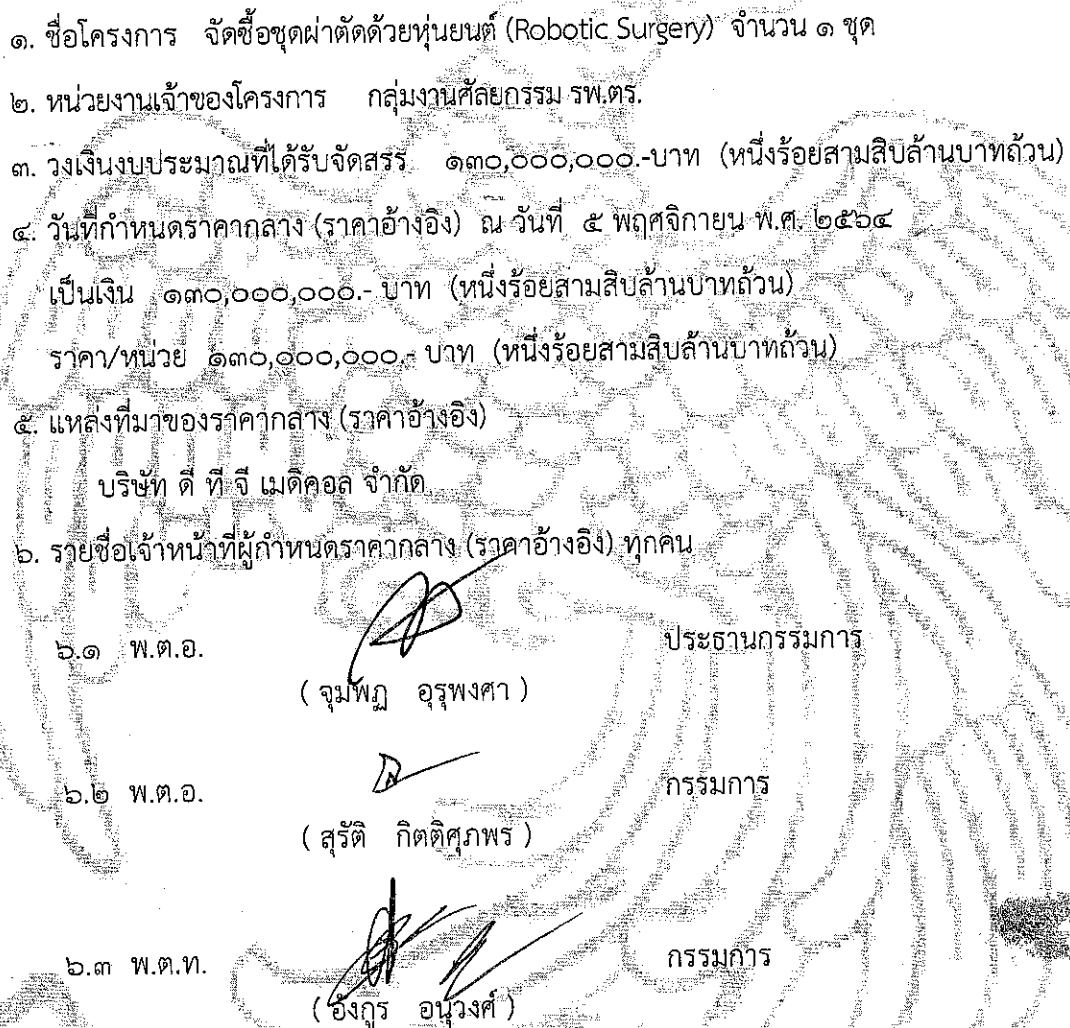 ๑. ชื่อโครงการ จัดซื้อชุดผ่าตัดด้วยหุ่นยนต์ (Robotic Surgery) จำนวน ๑ ชุด
๒. หน่วยงานเจ้าของโครงการ กลุ่มงานศัลยกรรม รพ.ตร.
๓. วงเงินงบประมาณที่ได้รับจัดสรร ๑๓๐,๐๐๐,๐๐๐.-บาท (หนึ่งร้อยสามสิบล้านบาทถ้วน)
๔. วันที่กำหนดราคากลาง (ราคาอ้างอิง) ณ วันที่ ๕ พฤศจิกายน พ.ศ. ๒๕๖๔
เป็นเงิน ๑๓๐,๐๐๐,๐๐๐.- บาท (หนึ่งร้อยสามสิบล้านบาทถ้วน)
ราคา/หน่วย ๑๓๐,๐๐๐,๐๐๐.- บาท (หนึ่งร้อยสามสิบล้านบาทถ้วน)
๕. แหล่งที่มาของราคากลาง (ราคาอ้างอิง)
บริษัท ดี ที จี เมดิคอล จำกัด
๖. รายชื่อเจ้าหน้าที่ผู้กำหนดราคากลาง (ราคาอ้างอิง) ทุกคน
๖.๑ พ.ต.อ. ประธานกรรมการ
( จุมพฏ อุรุพงศา )
๖.๒ พ.ต.อ. กรรมการ
( สุรัติ กิตติศุภพร )
๖.๓ พ.ต.ท. กรรมการ
( อังกูร อนุวงศ์ )